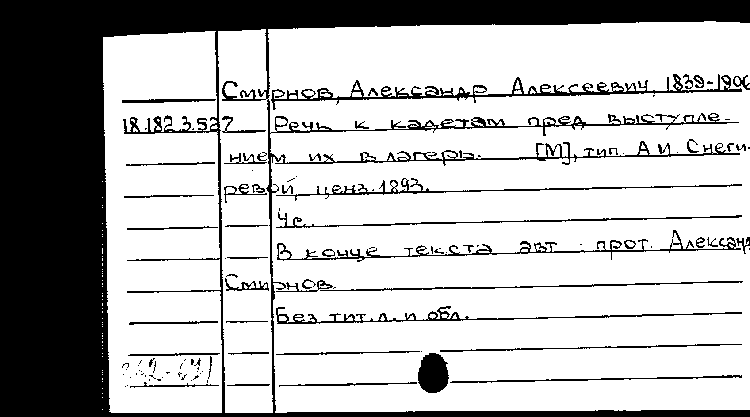 Смирнов, Александр Алексеевич, 1839-1906
18.182.3.527 Речь к кадетам пред выступле-
нием их в лагерь. [М], тип. А.И. Снеги-
ревой, ценз. 1893.
4с.
В конце текста авт.: прот. Александ
Смирнов
Без тит. л. и обл.